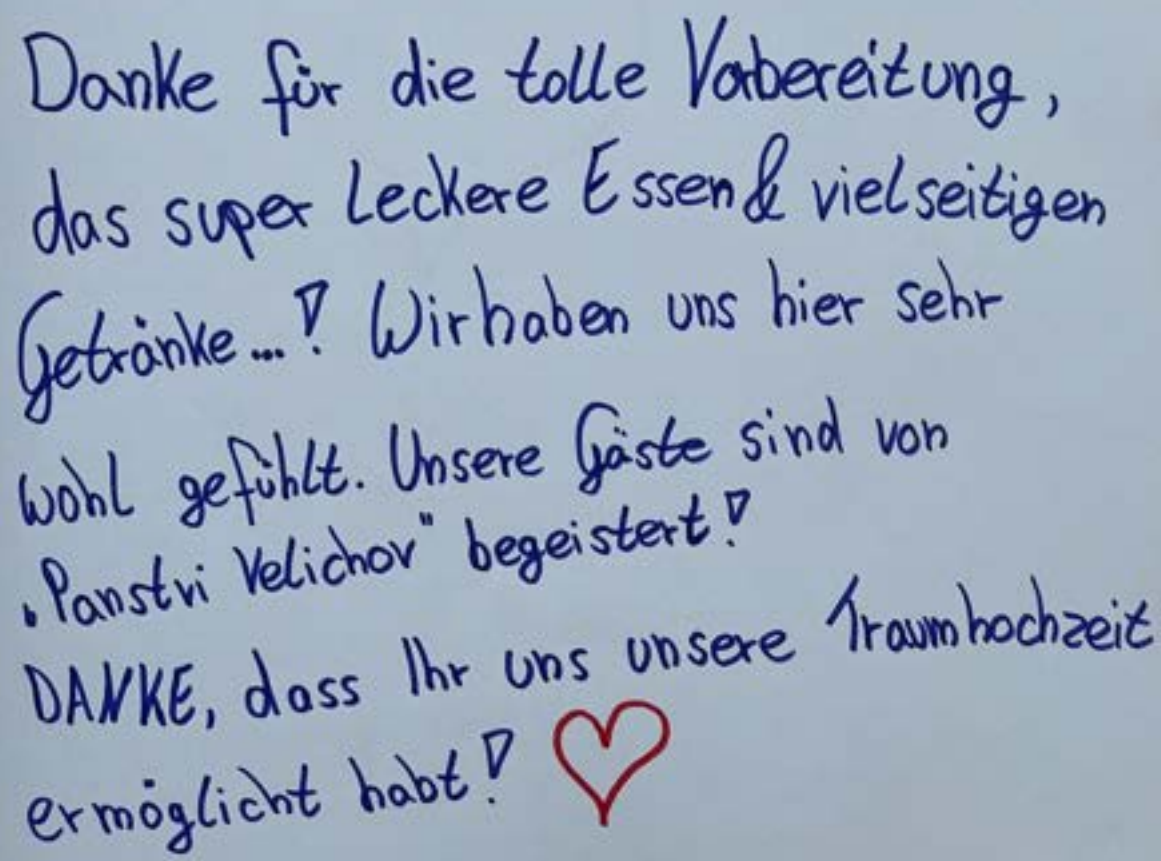 Danke für die tolle Vorbereitung,
das super leckere Essen & vielseitigen
Getränke...! Wir haben uns hier sehr
wohl gefühlt. Unsere Gäste sind von
"Panstvi Velichov" begeistert!
DANKE, dass Ihr uns unsere Traumhochzeit
ermöglicht habt! ♡